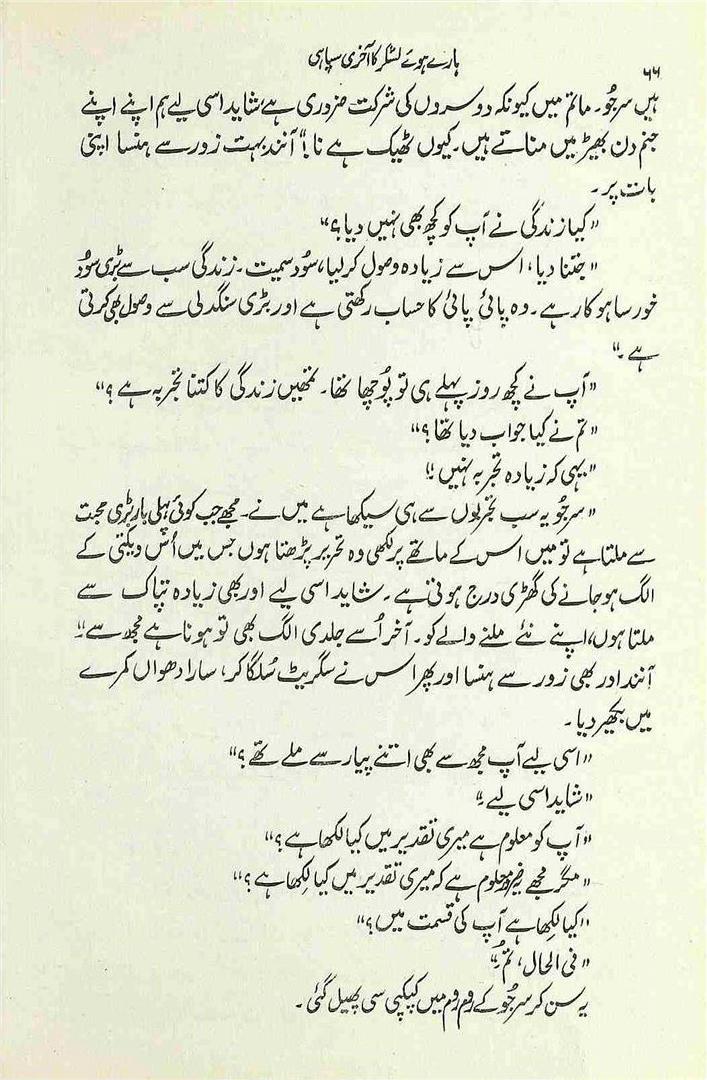 ۶۶
ہارے ہوئے لشکر کا آخری سپاہی
ہیں سرجُو۔ ماتم میں کیونکہ دوسروں کی شرکت ضروری ہے، شاید اسی لیے ہم اپنے اپنے
جنم دن بھیڑ میں مناتے ہیں۔ کیوں ٹھیک ہے نا!" آنند بہت زور سے ہنسا اپنی
بات پر۔
"کیا زندگی نے آپ کو کچھ بھی نہیں دیا؟"
"جتنا دیا، اس سے زیادہ وصول کر لیا، سُود سمیت۔ زندگی سب سے بڑی سُود
خور ساہوکار ہے۔ وہ پائی پائی کا حساب رکھتی ہے اور بڑی سنگدلی سے وصول بھی کرتی
ہے۔"
"آپ نے کچھ روز پہلے ہی تو پُوچھا تھا۔ تمھیں زندگی کا کتنا تجربہ ہے؟"
"تم نے کیا جواب دیا تھا؟"
"یہی کہ زیادہ تجربہ نہیں!"
"سرجُو یہ سب تجربوں سے ہی سیکھا ہے میں نے۔ مجھے جب کوئی پہلی بار بڑی محبت
سے ملتا ہے تو میں اس کے ماتھے پر لکھی وہ تحریر پڑھتا ہوں جس میں اُس ویکتی کے
الگ ہو جانے کی گھڑی درج ہوتی ہے۔ شاید اسی لیے اور بھی زیادہ تپاک سے
ملتا ہوں، اپنے نئے ملنے والے کو۔ آخر اُسے جلدی الگ بھی تو ہونا ہے مجھ سے!"
آنند اور بھی زور سے ہنسا اور پھر اس نے سگریٹ سُلگا کر، سارا دھواں کمرے
میں بکھیر دیا۔
"اسی لیے آپ مجھ سے بھی اتنے پیار سے ملے تھے؟"
"شاید اسی لیے۔"
"آپ کو معلوم ہے میری تقدیر میں کیا لکھا ہے؟"
"مگر مجھے ضرور معلوم ہے کہ میری تقدیر میں کیا لکھا ہے؟"
"کیا لکھا ہے آپ کی قسمت میں؟"
"فی الحال، تُم۔"
یہ سن کر سرجُو کے روم روم میں کپکپی سی پھیل گئی۔